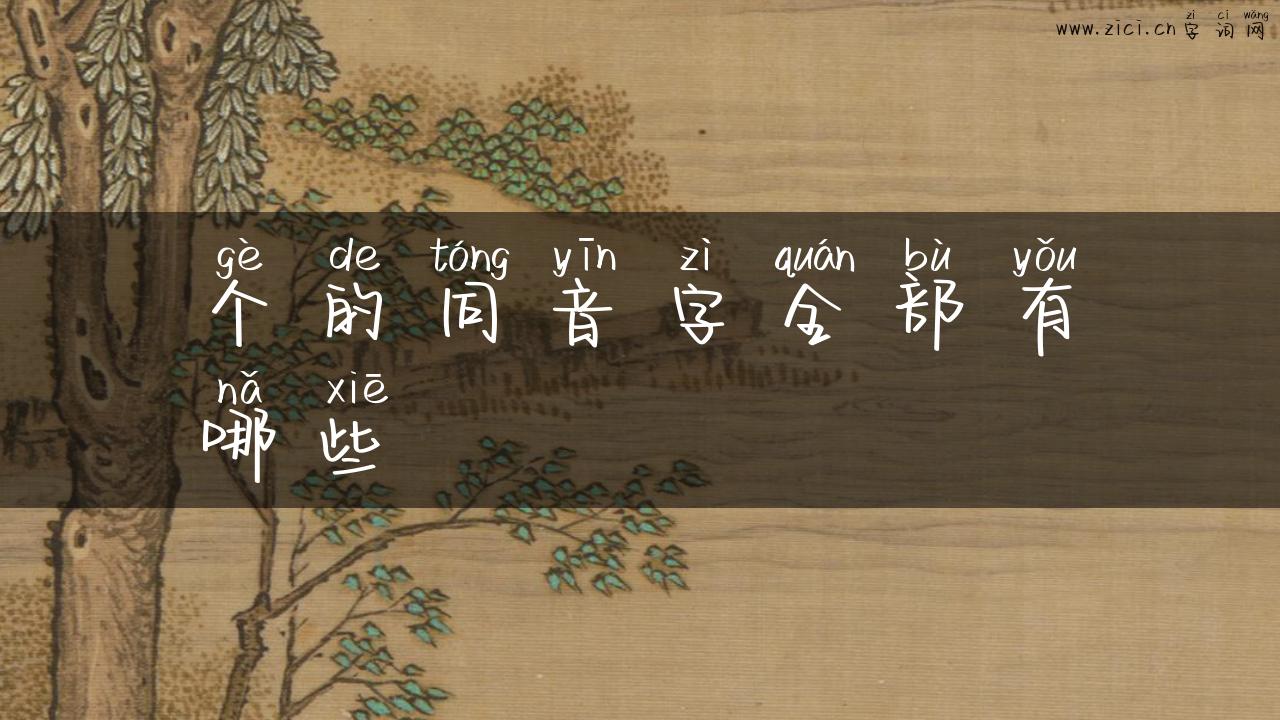 zì cí wǎng
www.zici.cn 字词网
gè de tóng yīn zì quán bù yǒu
个的同音字全部有
nǎ xiē
哪些